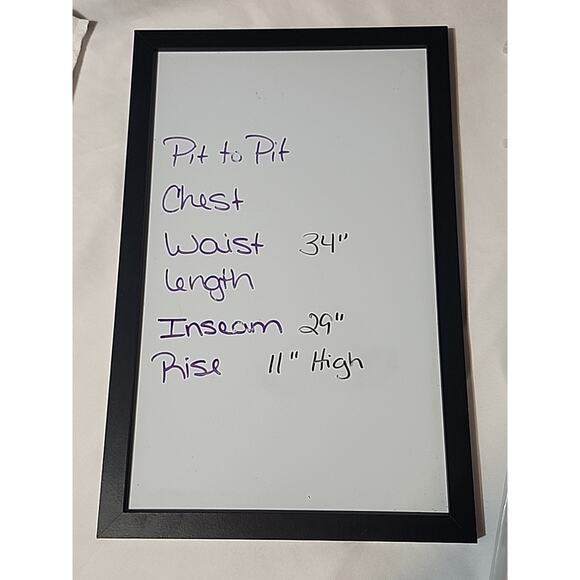 Pit to Pit
Chest
Waist 34"
Length
Inseam 29"
Rise 11" High